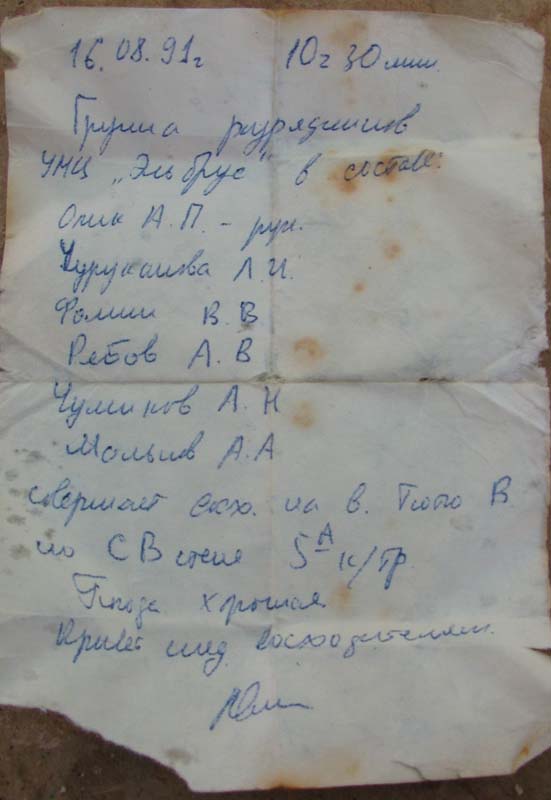 16.08.91г 10ч 30мин.
Группа разрядников
УМЦ „Эльбрус" в составе:
Олик А.П. – рук.
Чуруканова Л.И.
Фомин В.В
Рябов А.В
Чумиков А.Н
Мальцев А.А
совершает восх. на в. Тютю В
по СВ стене 5А к/тр
Погода хорошая
Привет след. восходителям.